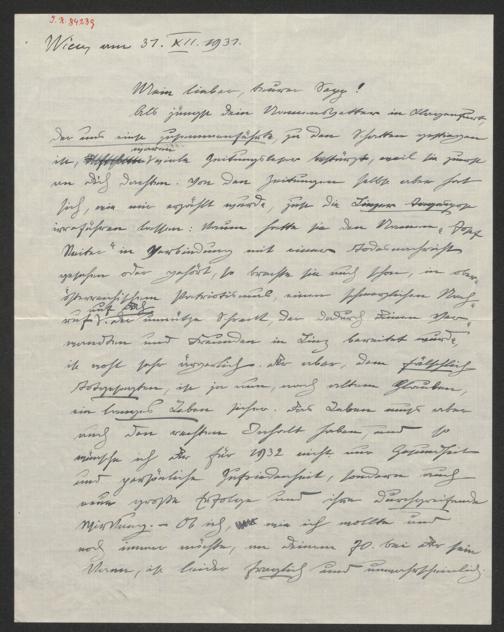 I.N. 84239
Wien, am 31. XII. 1931.
Mein lieber, teurer Sepp!
Als jüngst dein Namensvetter in Klagenfurt,
der uns einst zusammenführte, zu den Schatten gestiegen
ist, waren viele Zeitungsleser bestürzt, weil sie zuerst
an dich dachten. Von den Zeitungen selbst aber hat
sich, wie mir erzählt wurde, nur die Linzer Tagespost
irreführen lassen: kaum hatte sie den Namen „Josef
Reiter“ in Verbindung mit einer Todesnachricht
gesehen oder gehört, so brachte sie auch schon, in ober-
österreichischem Patriotismus, einen schmerzlichen Nach-
ruf auf dich. Der unnütze Schreck, der dadurch deinen Ver-
wandten und Freunden in Linz bereitet wurde,
ist wohl sehr ärgerlich. Dir aber, dem fälschlich
Totgesagten, ist ja nun, nach altem Glauben,
ein langes Leben sicher. Das Leben muß aber
auch den rechten Inhalt haben, und so
wünsche ich Dir für 1932 nicht nur Gesundheit
und persönliche Zufriedenheit, sondern auch
neue große Erfolge und ihre durchgreifende
Wirkung. – Ob ich, wie ich wollte und
noch immer möchte, an deinem 70. bei Dir sein
kann, ist leider fraglich und unwahrscheinlich.